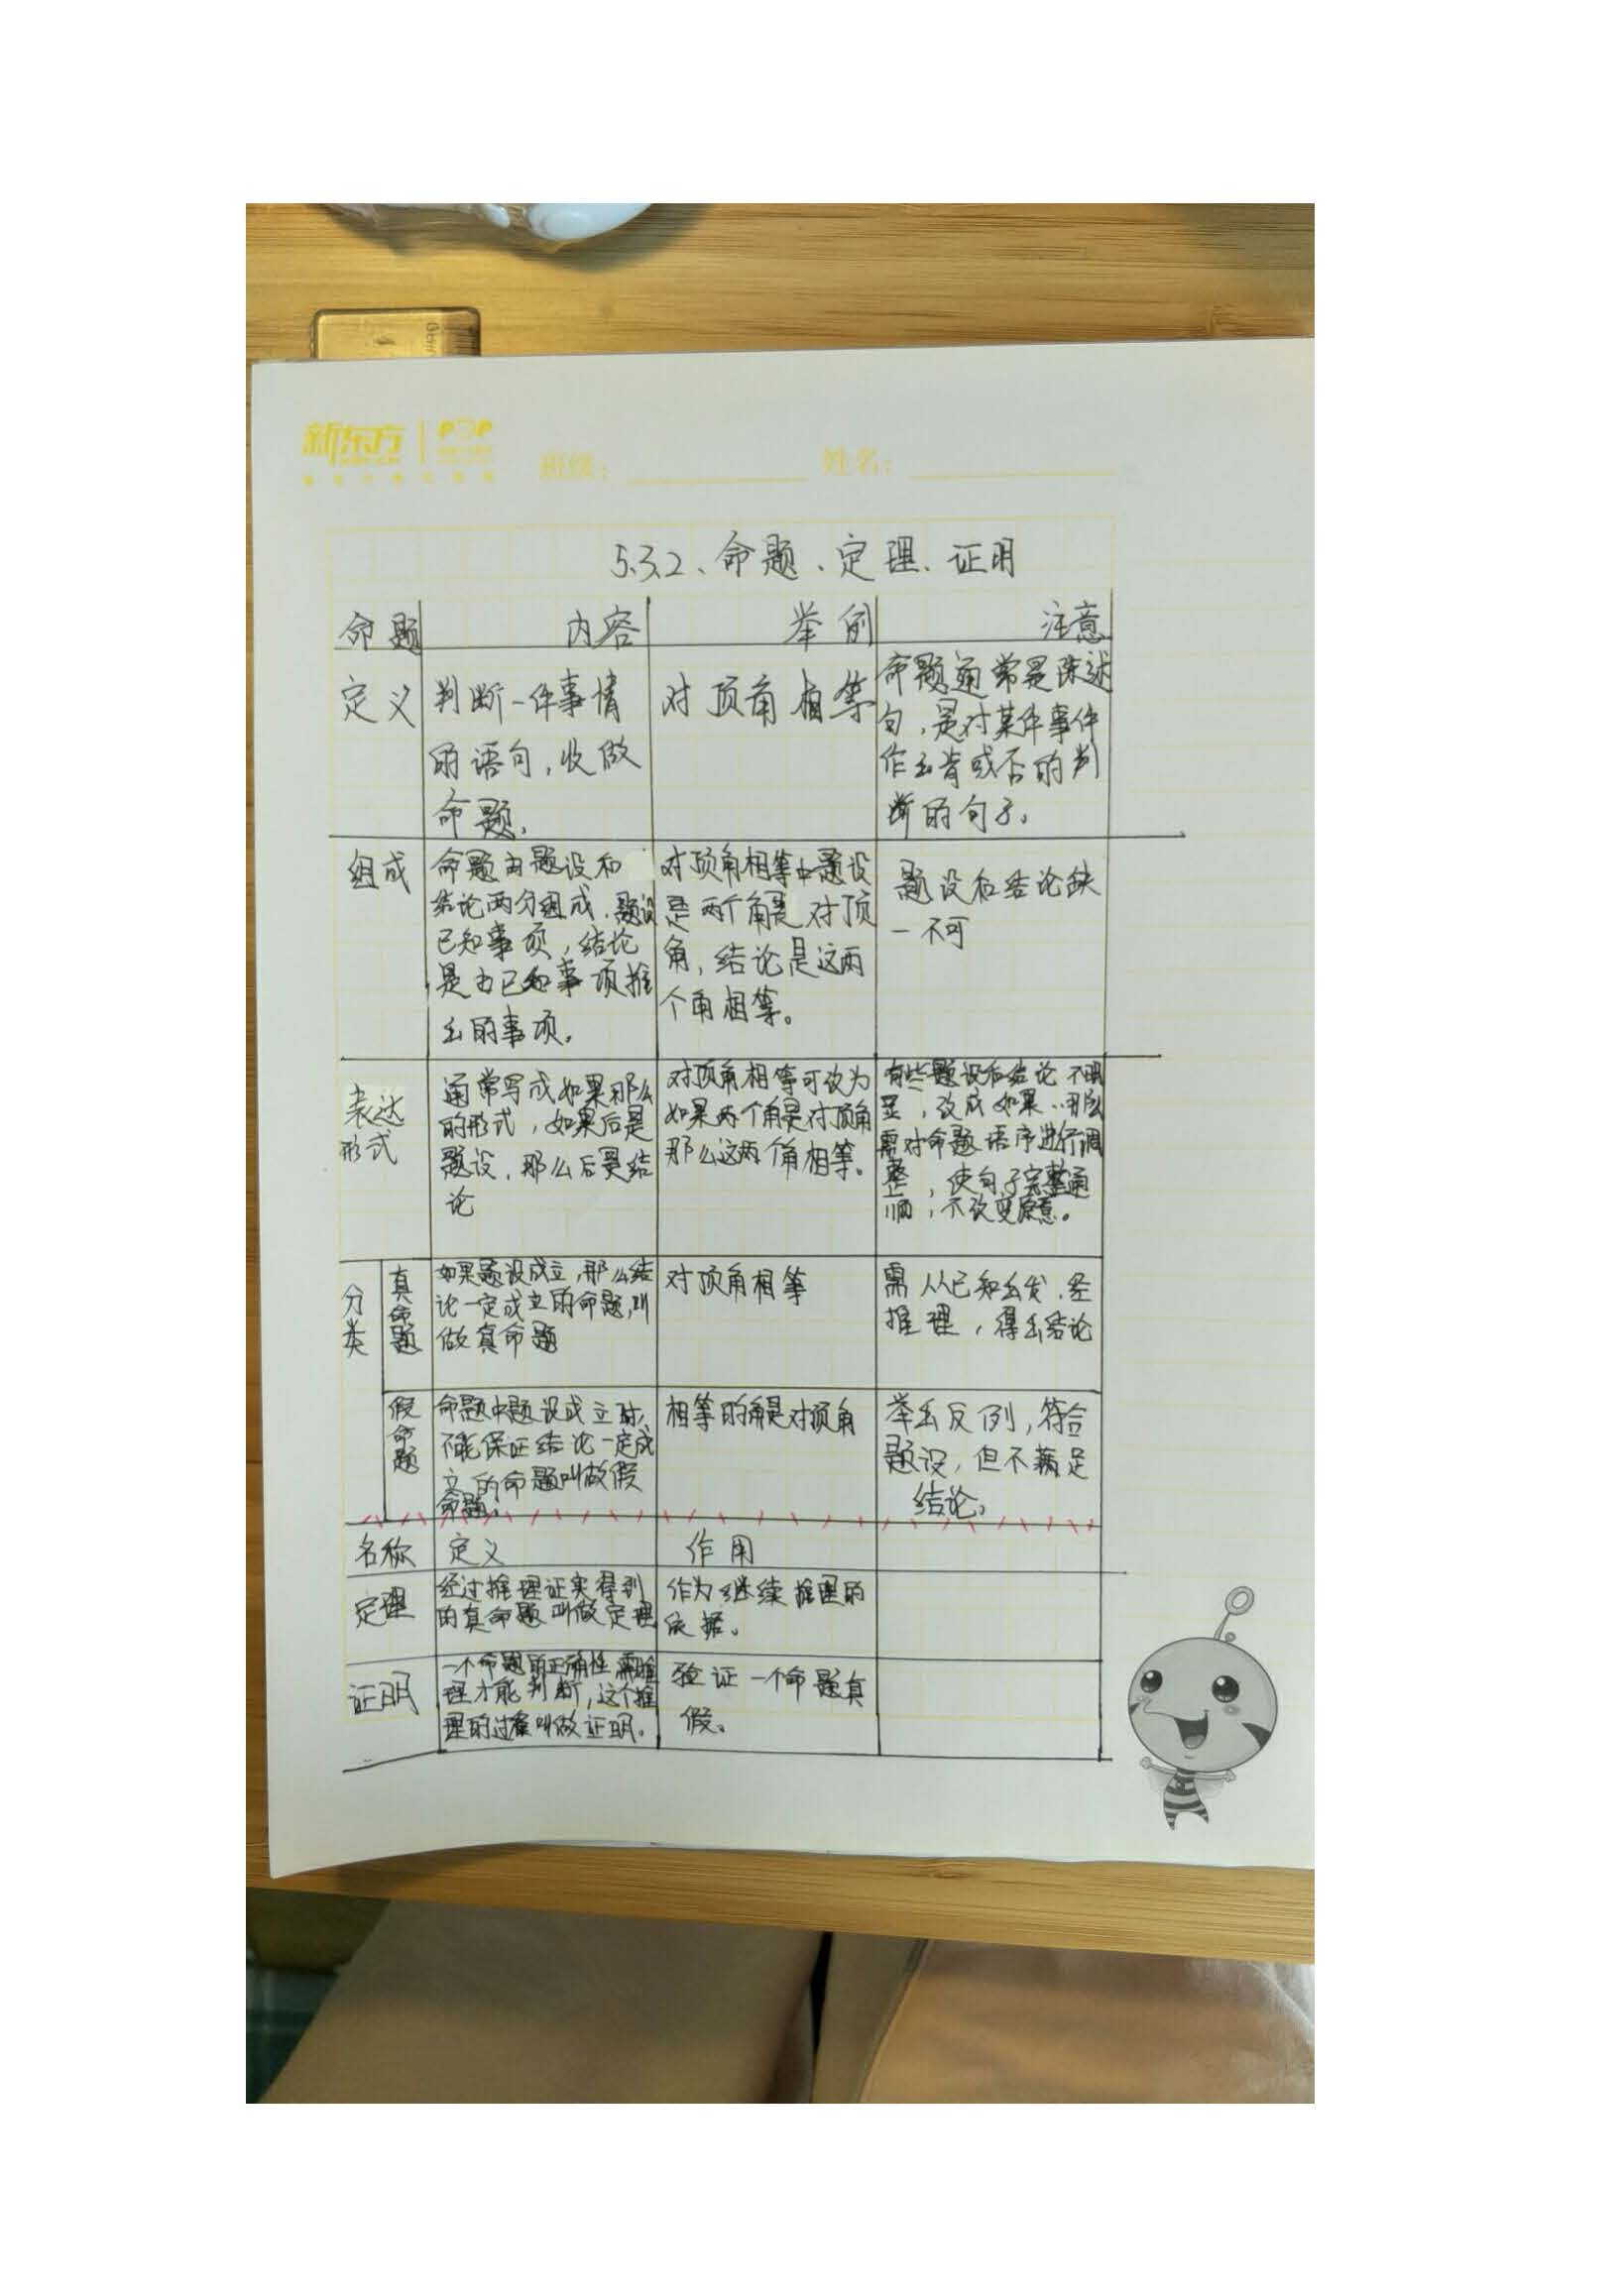 新东方 POP
班级： 姓名：
5.3.2、命题、定理、证明
命题 内容 举例 注意
定义
判断一件事情
的语句，收做
命题.
对顶角相等
命题通常是陈述
句，是对某件事件
作出肯或否的判
断的句子。
组成
命题由题设和
结论两分组成.题设
已知事项，结论
是由已知事项推
出的事项.
对顶角相等中题设
是两个角是对顶
角，结论是这两
个角相等。
题设和结论缺
一不可
表达
形式
通常写成如果那么
的形式，如果后是
题设，那么后是结
论
对顶角相等可改为
如果两个角是对顶角
那么这两个角相等。
有些题设和结论不明
显，改成如果..那么
需对命题语序进行调
整，使句子完整通
顺，不改变原意。
分
类
真
命
题
如果题设成立,那么结
论一定成立的命题,叫
做真命题
对顶角相等
需从已知出发.经
推理，得出结论
假
命
题
命题中题设成立时,
不能保证结论一定成
立的命题叫做假
命题.
相等的角是对顶角
举出反例，符合
题设，但不满足
结论。
名称 定义 作用
定理
经过推理证实得到
的真命题叫做定理
作为继续推理的
依据。
证明
一个命题的正确性需推
理才能判断，这个推
理的过程叫做证明。
验证一个命题真
假。